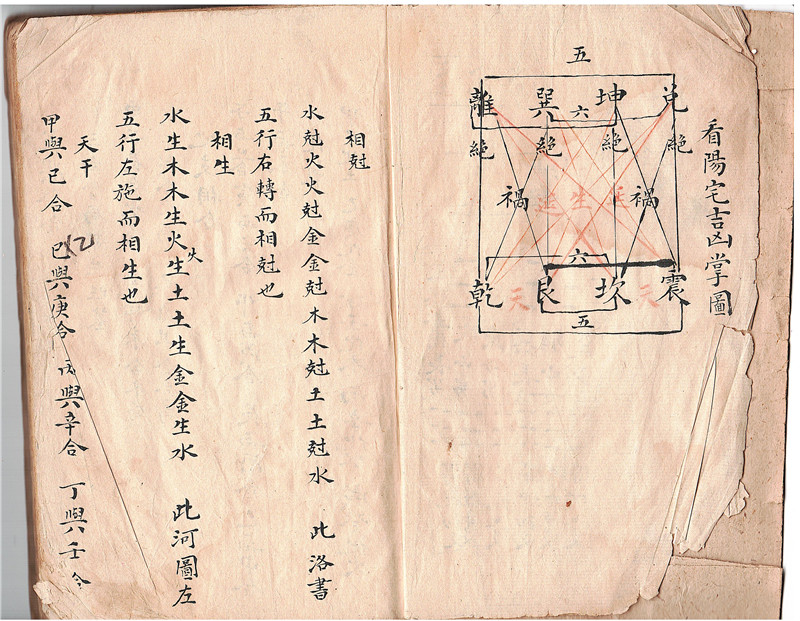 看陽宅吉凶掌圖
五
離 巽 坤 兌
六
絕 絕 絕 絕
禍 禍
生
六
乾 天 艮 坎 元 震
五
相尅
水尅火火尅金金尅木木尅土土尅水 此洛書
五行右轉而相尅也
相生
水生木木生火火生土土生金金生水 此河圖左
五行左施而相生也
天干
甲與己合 乙與庚合 丙與辛合 丁與壬合